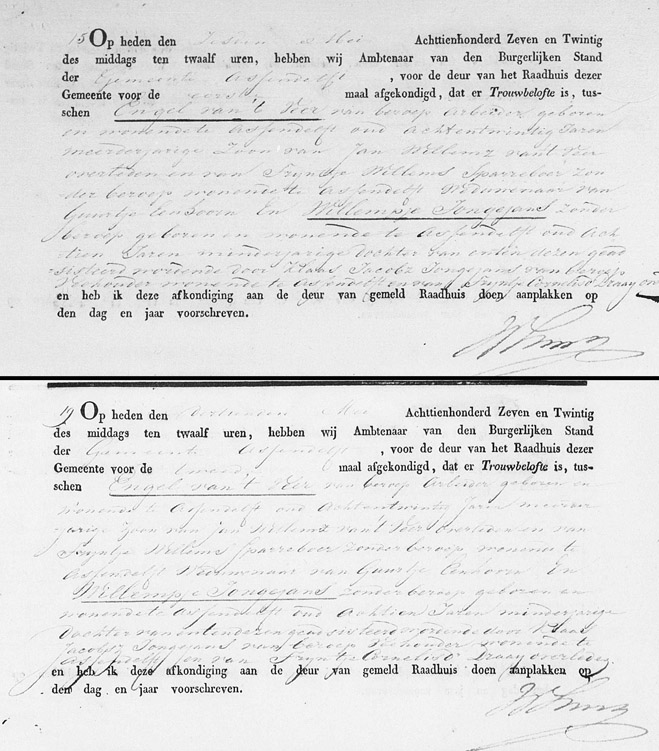 15 Op heden den Mei Achttienhonderd Zeven en Twintig
des middags ten twaalf uren, hebben wij Ambtenaar van den Burgerlijken Stand
der Gemeente Assendelft , voor de deur van het Raadhuis dezer
Gemeente voor de eerste maal afgekondigd, dat er Trouwbelofte is, tus-
schen Engel van 't Veer van beroep Arbeider geboren
en wonende te Assendelft oud Achtentwintig Jaren
meerderjarige Zoon van Jan Willemz vant Veer
overleden en van Tryntje Willems Sparreboer Zon
der beroep wonende te Assendelft Weduwenaar van
Guurtje Eenhoorn En Willempje Jongejans Zonder
beroep geboren en wonende te Assendelft oud Ach
tien Jaren minderjarige dochter van
door Klaas Jacobz Jongejans van beroep
Veehouder wonende te Assendelft en van Tryntje Cornelis
en heb ik deze afkondiging aan de deur van gemeld Raadhuis doen aanplakken op
den dag en jaar voorschreven.
19 Op heden den Mei Achttienhonderd Zeven en Twintig
des middags ten twaalf uren, hebben wij Ambtenaar van den Burgerlijken Stand
der Gemeente Assendelft , voor de deur van het Raadhuis dezer
Gemeente voor de tweede maal afgekondigd, dat er Trouwbelofte is, tus-
schen Engel van 't Veer van beroep Arbeider geboren en
wonende te Assendelft oud Achtentwintig Jaren meerder
jarige Zoon van Jan Willemz vant Veer overleden en van
Tryntje Willems Sparreboer Zonder beroep wonende te
Assendelft Weduwenaar van Guurtje Eenhoorn En
Willempje Jongejans zonder beroep geboren en
wonende te Assendelft oud Achtien Jaren minderjarige
dochter van door Klaas
Jacobz Jongejans van beroep Veehouder wonende te
Assendelft en van Tryntje Cornelis overleden
en heb ik deze afkondiging aan de deur van gemeld Raadhuis doen aanplakken op
den dag en jaar voorschreven.